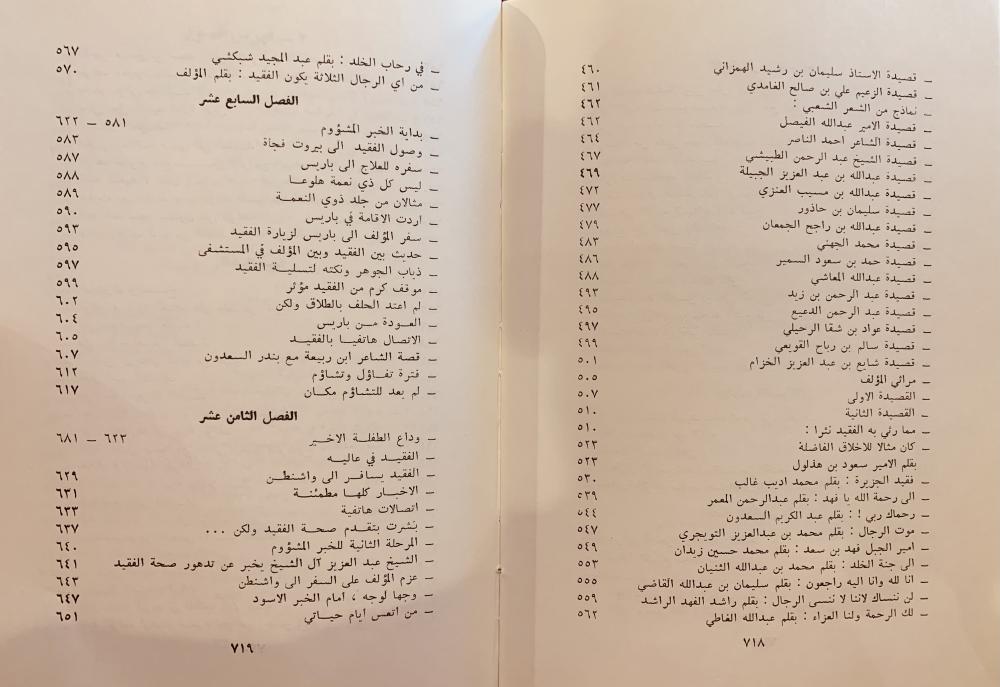 ـ قصيدة الاستاذ سليمان بن رشيد الهمزاني ٤٦٠
ـ قصيدة الزعيم علي بن صالح الغامدي ٤٦١
ـ نماذج من الشعر الشعبي : ٤٦٢
ـ قصيدة الامير عبدالله الفيصل ٤٦٢
ـ قصيدة الشاعر احمد الناصر ٤٦٤
ـ قصيدة الشيخ عبد الرحمن الطبيشي ٤٦٧
ـ قصيدة عبدالله بن عبد العزيز الجبيلة ٤٦٩
ـ قصيدة عبدالله بن مسيب العنزي ٤٧٢
ـ قصيدة سليمان بن حاذور ٤٧٧
ـ قصيدة عبدالله بن راجح الجمعان ٤٧٩
ـ قصيدة محمد الجهني ٤٨٣
ـ قصيدة حمد بن سعود السمير ٤٨٦
ـ قصيدة عبدالله المعاشي ٤٨٨
ـ قصيدة عبد الرحمن بن زيد ٤٩٣
ـ قصيدة عبد الرحمن الدعيع ٤٩٥
ـ قصيدة عواد بن شقا الرحيلي ٤٩٧
ـ قصيدة سالم بن رباح القويعي ٤٩٩
ـ قصيدة شايع بن عبد العزيز الخزام ٥٠١
ـ مراثي المؤلف ٥٠٥
ـ القصيدة الاولى ٥٠٧
ـ القصيدة الثانية ٥١٠
ـ مما رثي به الفقيد نثرا : ٥١٠
ـ كان مثالا للاخلاق الفاضلة ٥٢٣
بقلم الامير سعود بن هذلول ٥٢٣
ـ فقيد الجزيرة : بقلم محمد اديب غالب ٥٣٠
ـ الى رحمة الله يا فهد : بقلم عبدالرحمن المعمر ٥٣٩
ـ رحماك ربي ! : بقلم عبد الكريم السعدون ٥٤٤
ـ موت الرجال : بقلم محمد بن عبدالعزيز التويجري ٥٤٧
ـ امير الجبل فهد بن سعد : بقلم محمد حسين زيدان ٥٤٩
ـ الى جنة الخلد : بقلم محمد بن عبدالله الثنيان ٥٥٣
ـ انا لله وانا اليه راجعون : بقلم سليمان بن عبدالله القاضي ٥٥٥
ـ لن ننساك لاننا لا ننسى الرجال : بقلم راشد الفهد الراشد ٥٥٩
ـ لك الرحمة ولنا العزاء : بقلم عبدالله الغاطي ٥٦٢
٧١٨
ـ في رحاب الخلد : بقلم عبد المجيد شبكشي ٥٦٧
ـ من اي الرجال الثلاثة يكون الفقيد : بقلم المؤلف ٥٧٠
الفصل السابع عشر
ـ بداية الخبر المشؤوم ٥٨١ ـ ٦٢٢
ـ وصول الفقيد الى بيروت فجأة ٥٨٣
ـ سفره للعلاج الى باريس ٥٨٧
ـ ليس كل ذي نعمة هلوعا ٥٨٨
ـ مثالان من جلد ذوي النعمة ٥٨٩
ـ اردت الاقامة في باريس ٥٩٠
ـ سفر المؤلف الى باريس لزيارة الفقيد ٥٩٣
ـ حديث بين الفقيد وبين المؤلف في المستشفى ٥٩٥
ـ ذباب الجوهر ونكته لتسلية الفقيد ٥٩٧
ـ موقف كرم من الفقيد مؤثر ٥٩٩
ـ لم اعتد الحلف بالطلاق ولكن ٦٠٢
ـ العودة من باريس ٦٠٤
ـ الاتصال هاتفيا بالفقيد ٦٠٥
ـ قصة الشاعر ابن ربيعة مع بندر السعدون ٦٠٧
ـ فترة تفاؤل وتشاؤم ٦١٢
ـ لم يعد للتشاؤم مكان ٦١٧
الفصل الثامن عشر
ـ وداع الطفلة الاخير ٦٢٣ ـ ٦٨١
ـ الفقيد في عاليه
ـ الفقيد يسافر الى واشنطن ٦٢٩
ـ الاخبار كلها مطمئنة ٦٣١
ـ اتصالات هاتفية ٦٣٣
ـ نشرت بتقدم صحة الفقيد ولكن ... ٦٣٧
ـ المرحلة الثانية للخبر المشؤوم ٦٤٠
ـ الشيخ عبد العزيز آل الشيخ يخبر عن تدهور صحة الفقيد ٦٤١
ـ عزم المؤلف على السفر الى واشنطن ٦٤٣
ـ وجها لوجه ، أمام الخبر الاسود ٦٤٧
ـ من اتعس ايام حياتي ٦٥١
٧١٩